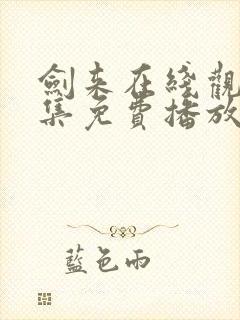 劍来在綫觀
集免費播放
藍色雨